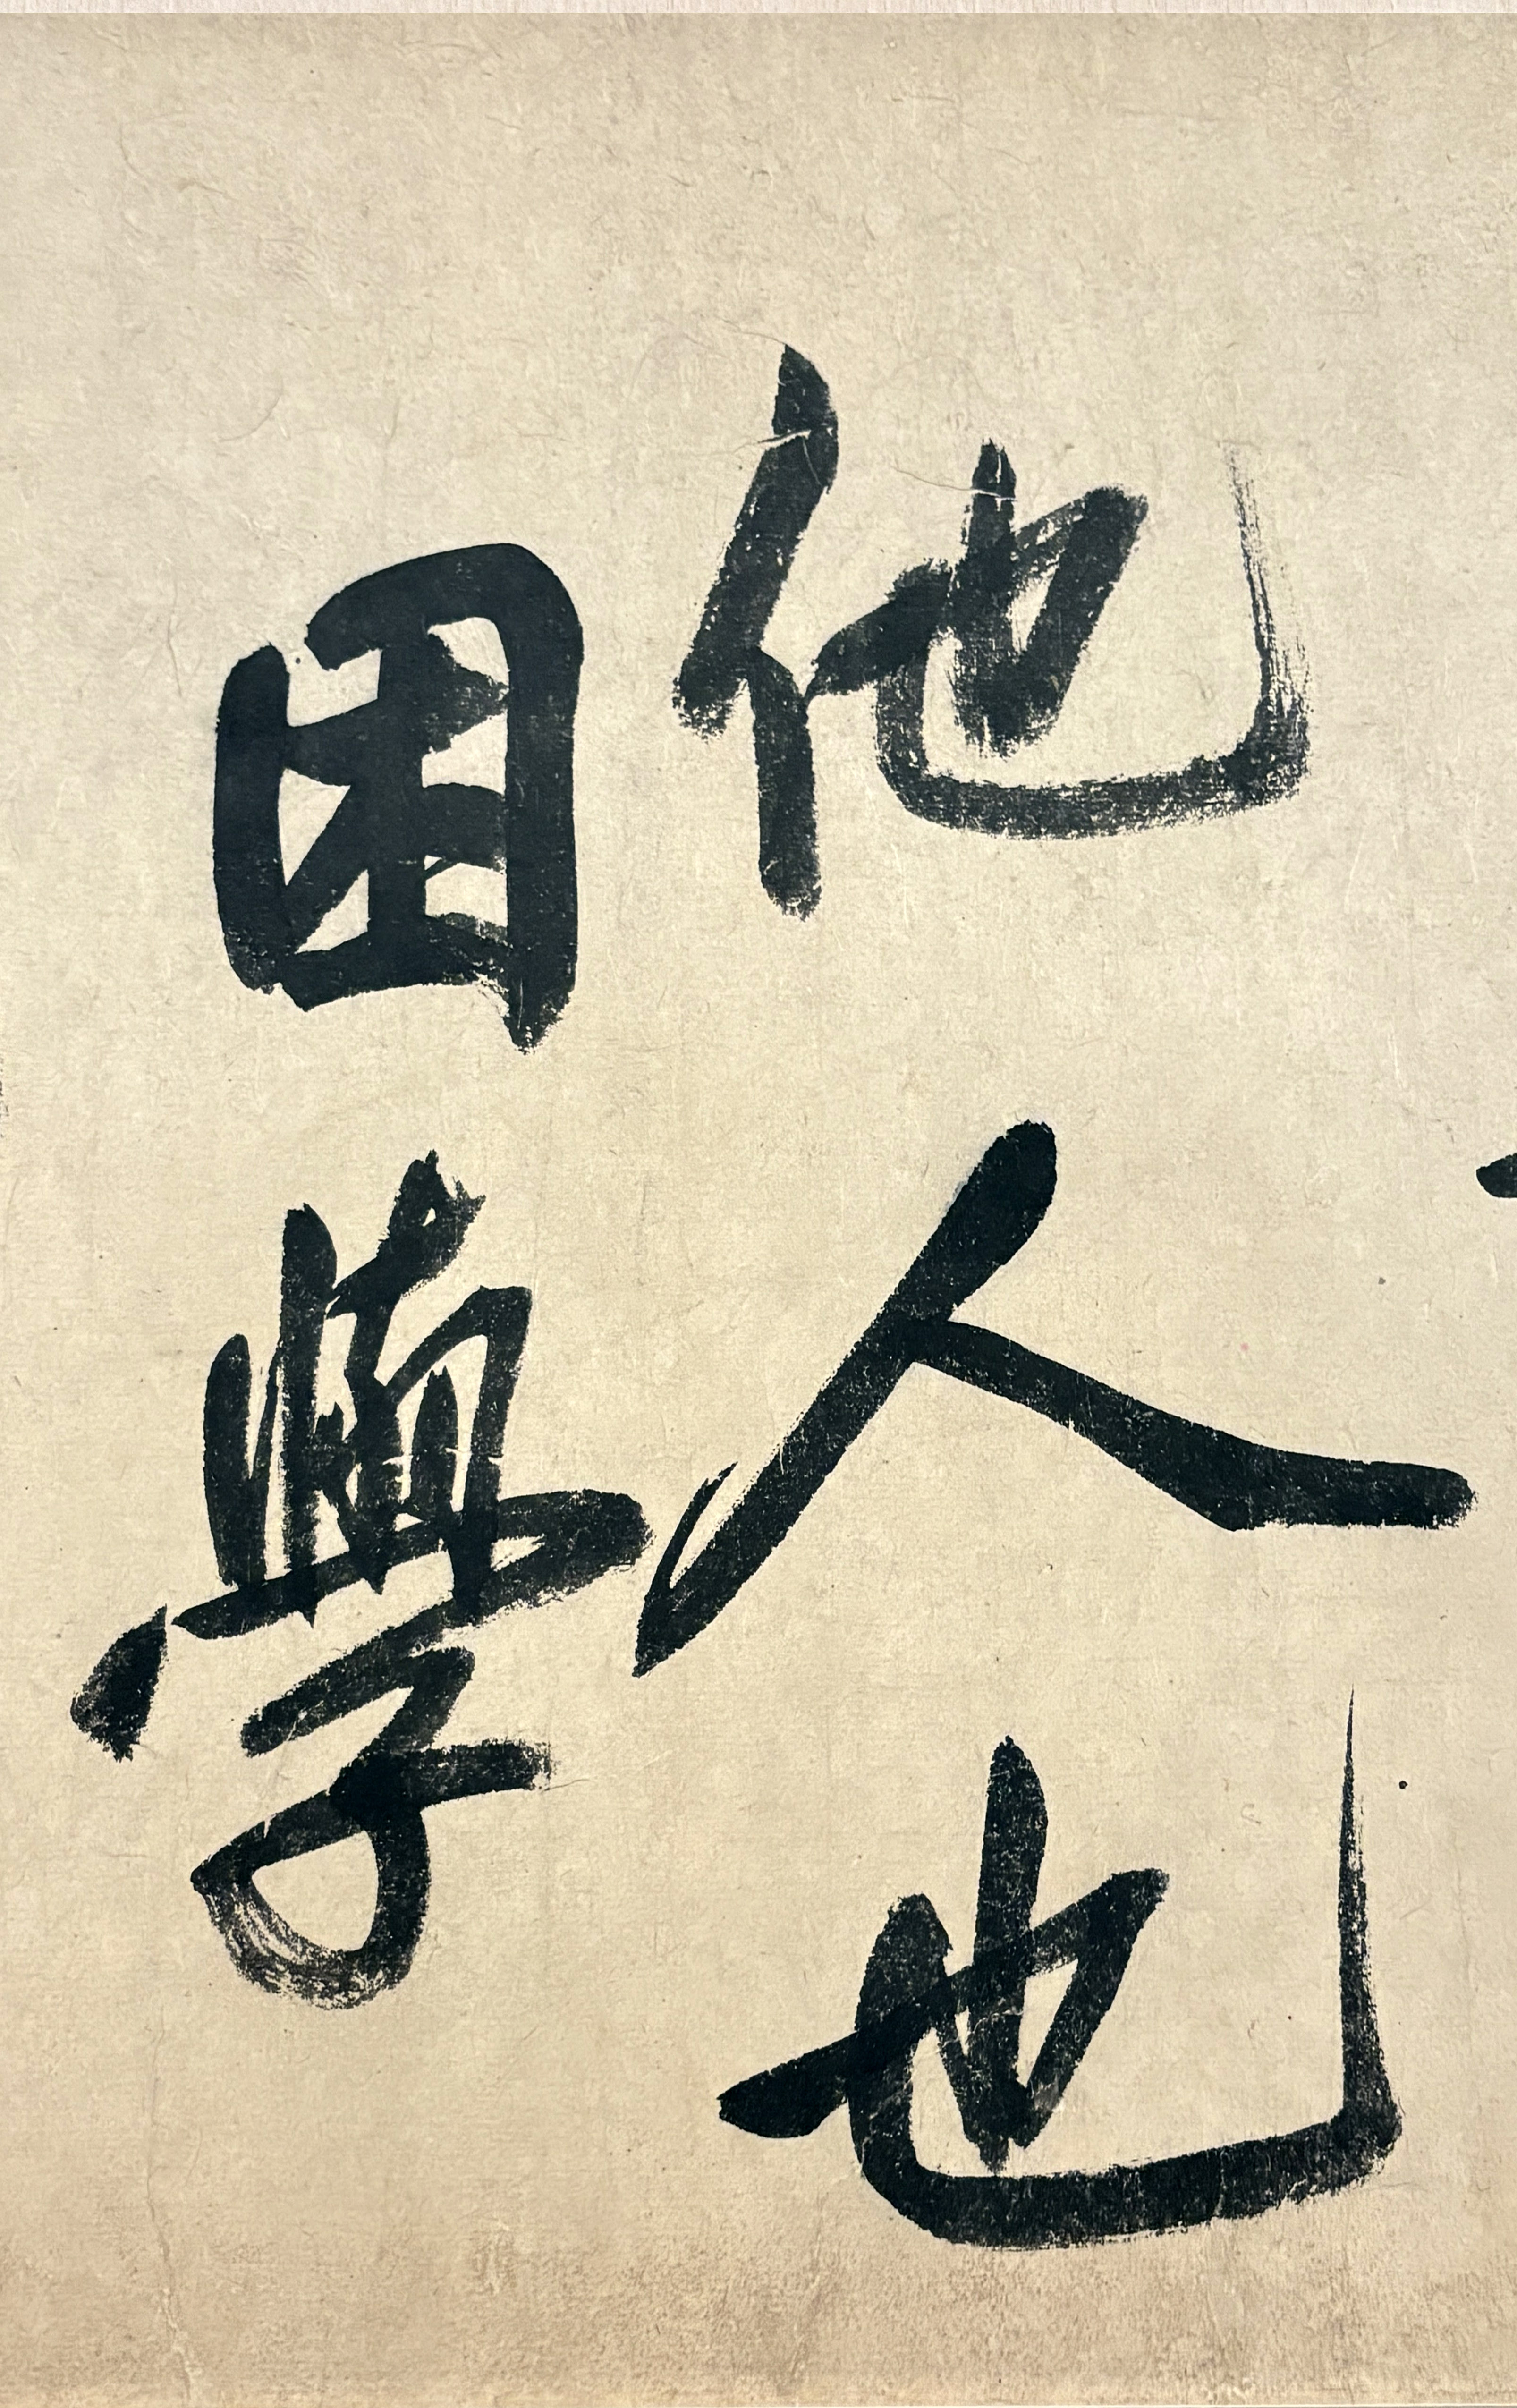 他人也
困學